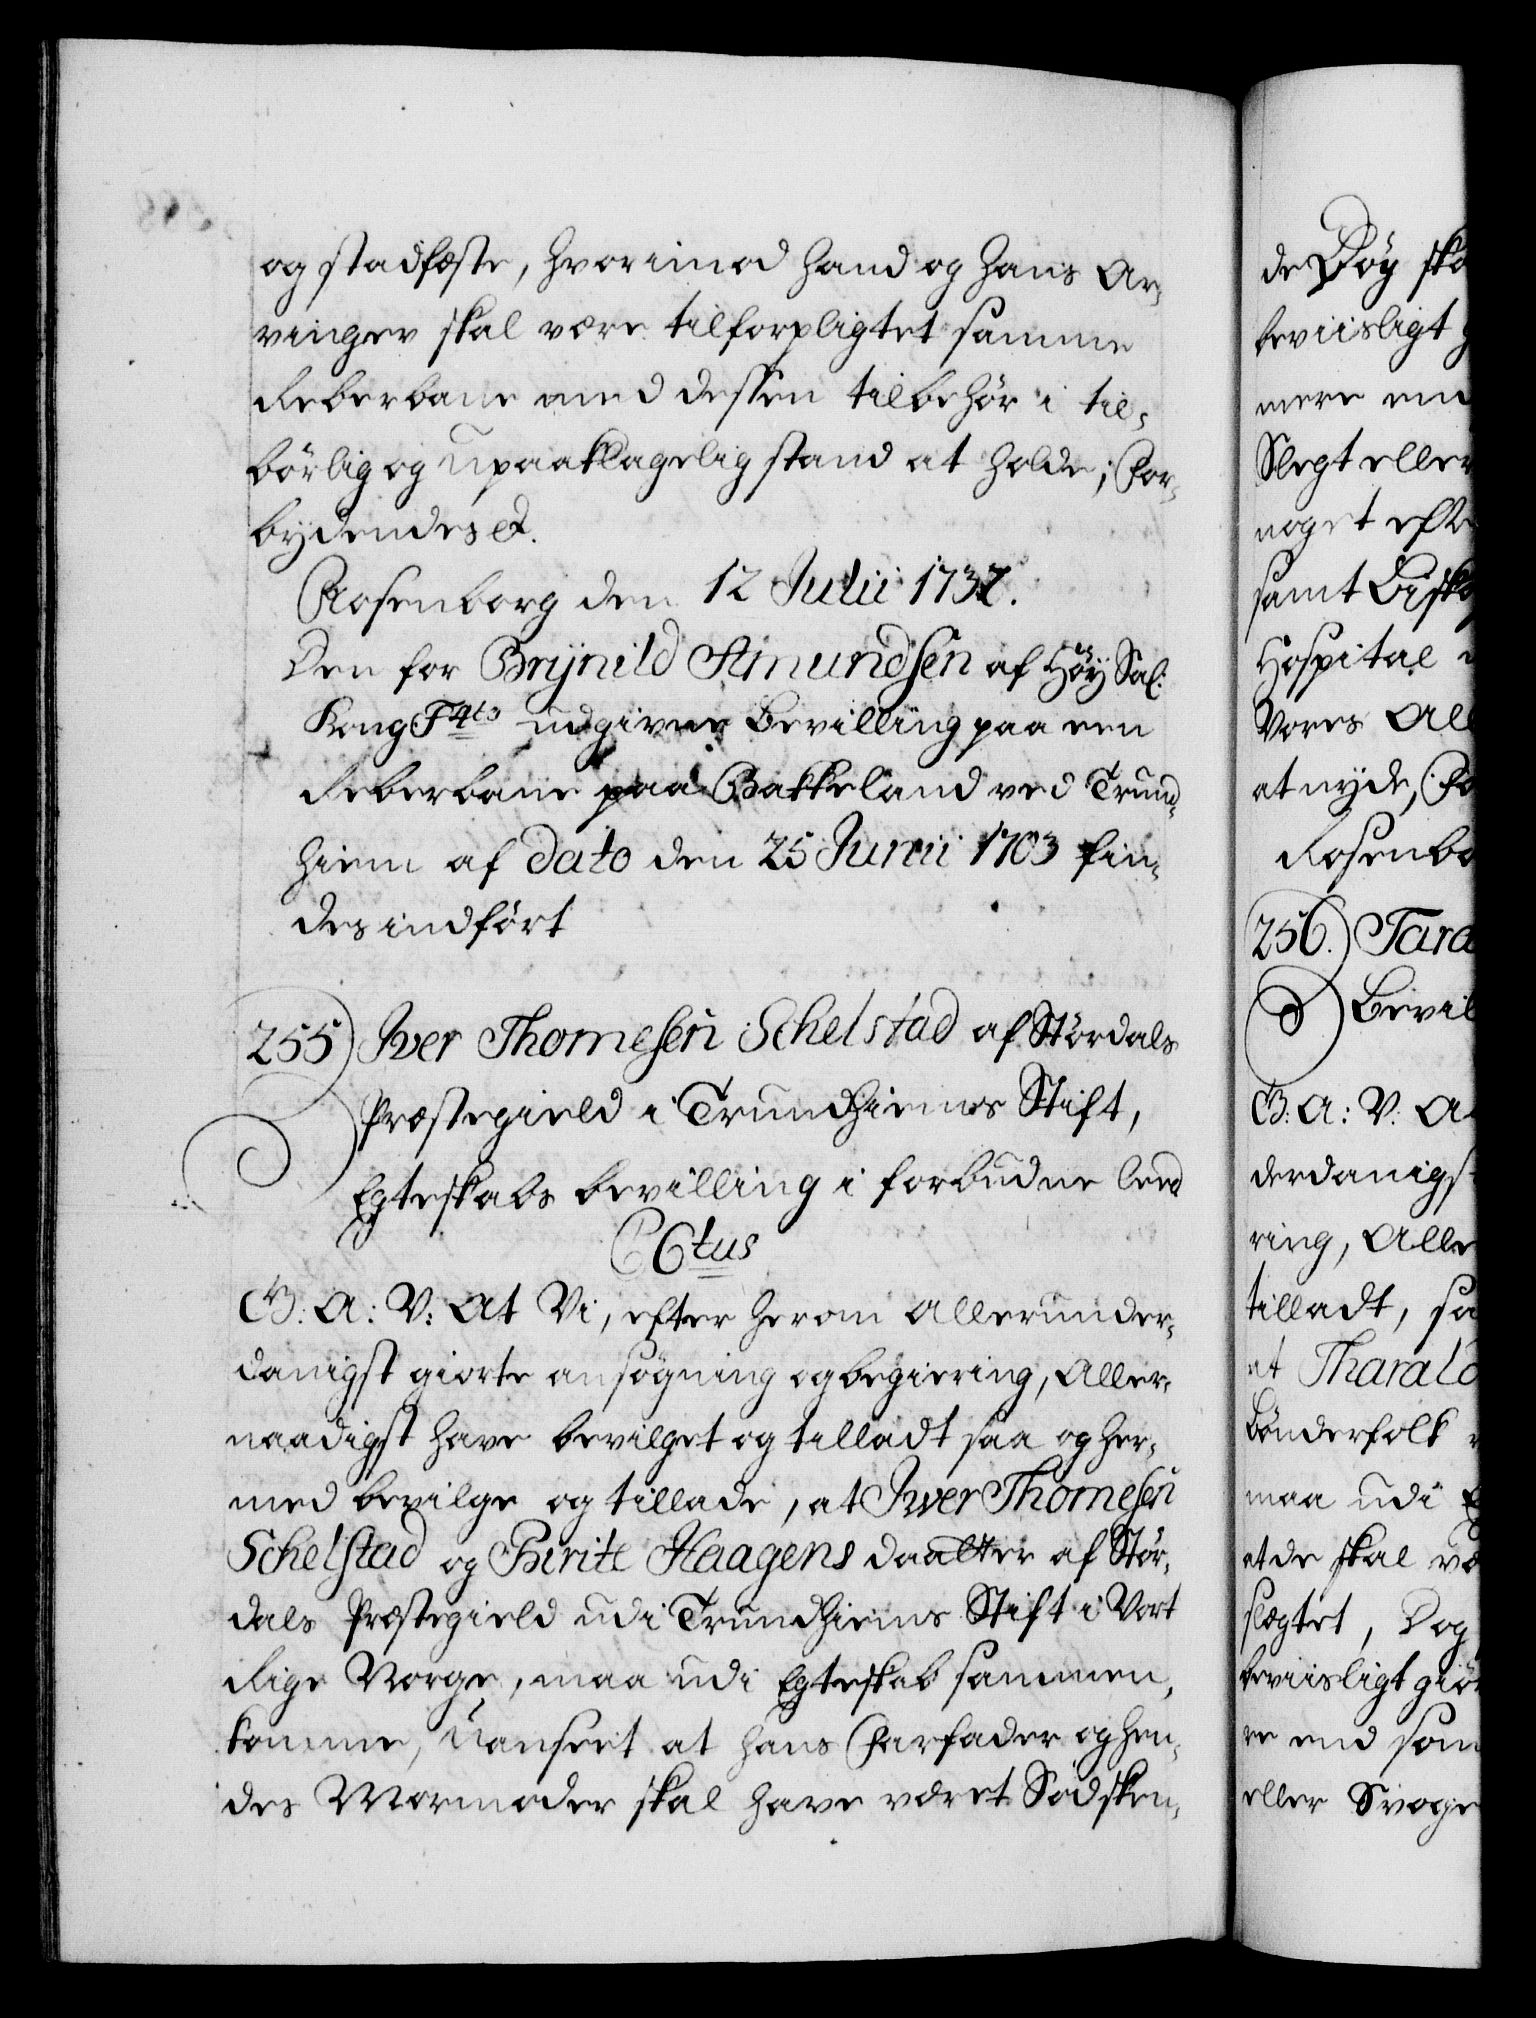 og stadfæste, hvorimod hand og hans Ar¬
vinger skal være tilforpligtet samme
Reberbane med dessen tilbehør i til¬
børlig og upaaklagelig stand at holde; For¬
bydendes &.
Rosenborg den 12 Julii 1737.
Den for Brynild Amundsen af Høy Sal:
Kong F 4ts udgivne bevilling paa een
Reberbane paa Bakkeland ved Trund¬
hiem af dato den 25 Junii 1703 fin¬
des indført
255) Iver Thomesen Schelstad af Størdals
Præstegield i Trundhiems Stift,
Egteskabs bevilling i forbudne leed
C 6tus
G: A: V: At Vi, efter herom allerunder¬
danigst giorte ansøgning og begiering, Aller¬
naadigst have bevilget og tilladt saa og her¬
med bevilge og tillade, at Iver Thomesen
Schelstad og Birite Haagens daatter af Stør¬
dals Præstegield udi Trundhiems Stift i Vort
Rige Norge, maa udi Egteskab sammen,
komme, Uanseet at hans Farfader og hen¬
des Mormoder skal have været Sødsken¬
de Døy ska
beviisligt g
mere end
Slegt eller
noget efte
samt Bisko
Hospital
Vores All
at nyde, Fo
Rosenbo
256.) Tara
Bevil
G. A: V. A
derdanigs
ring, Alle
tilladt, sa
at Tharald
bønderfolk
maa udi E
at de skal væ
slegtet, Dog
beviisligt giø
re end som
eller Svoge